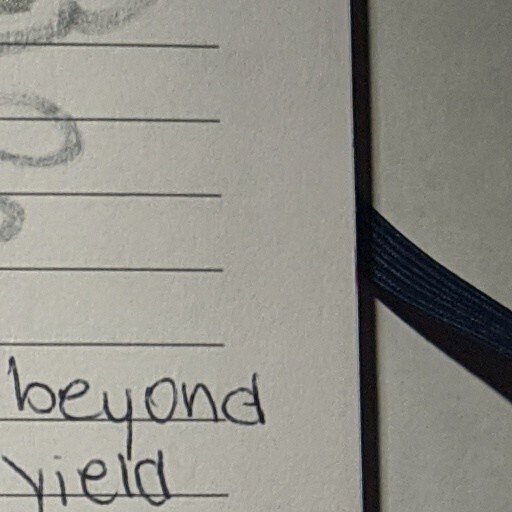 beyond
yield